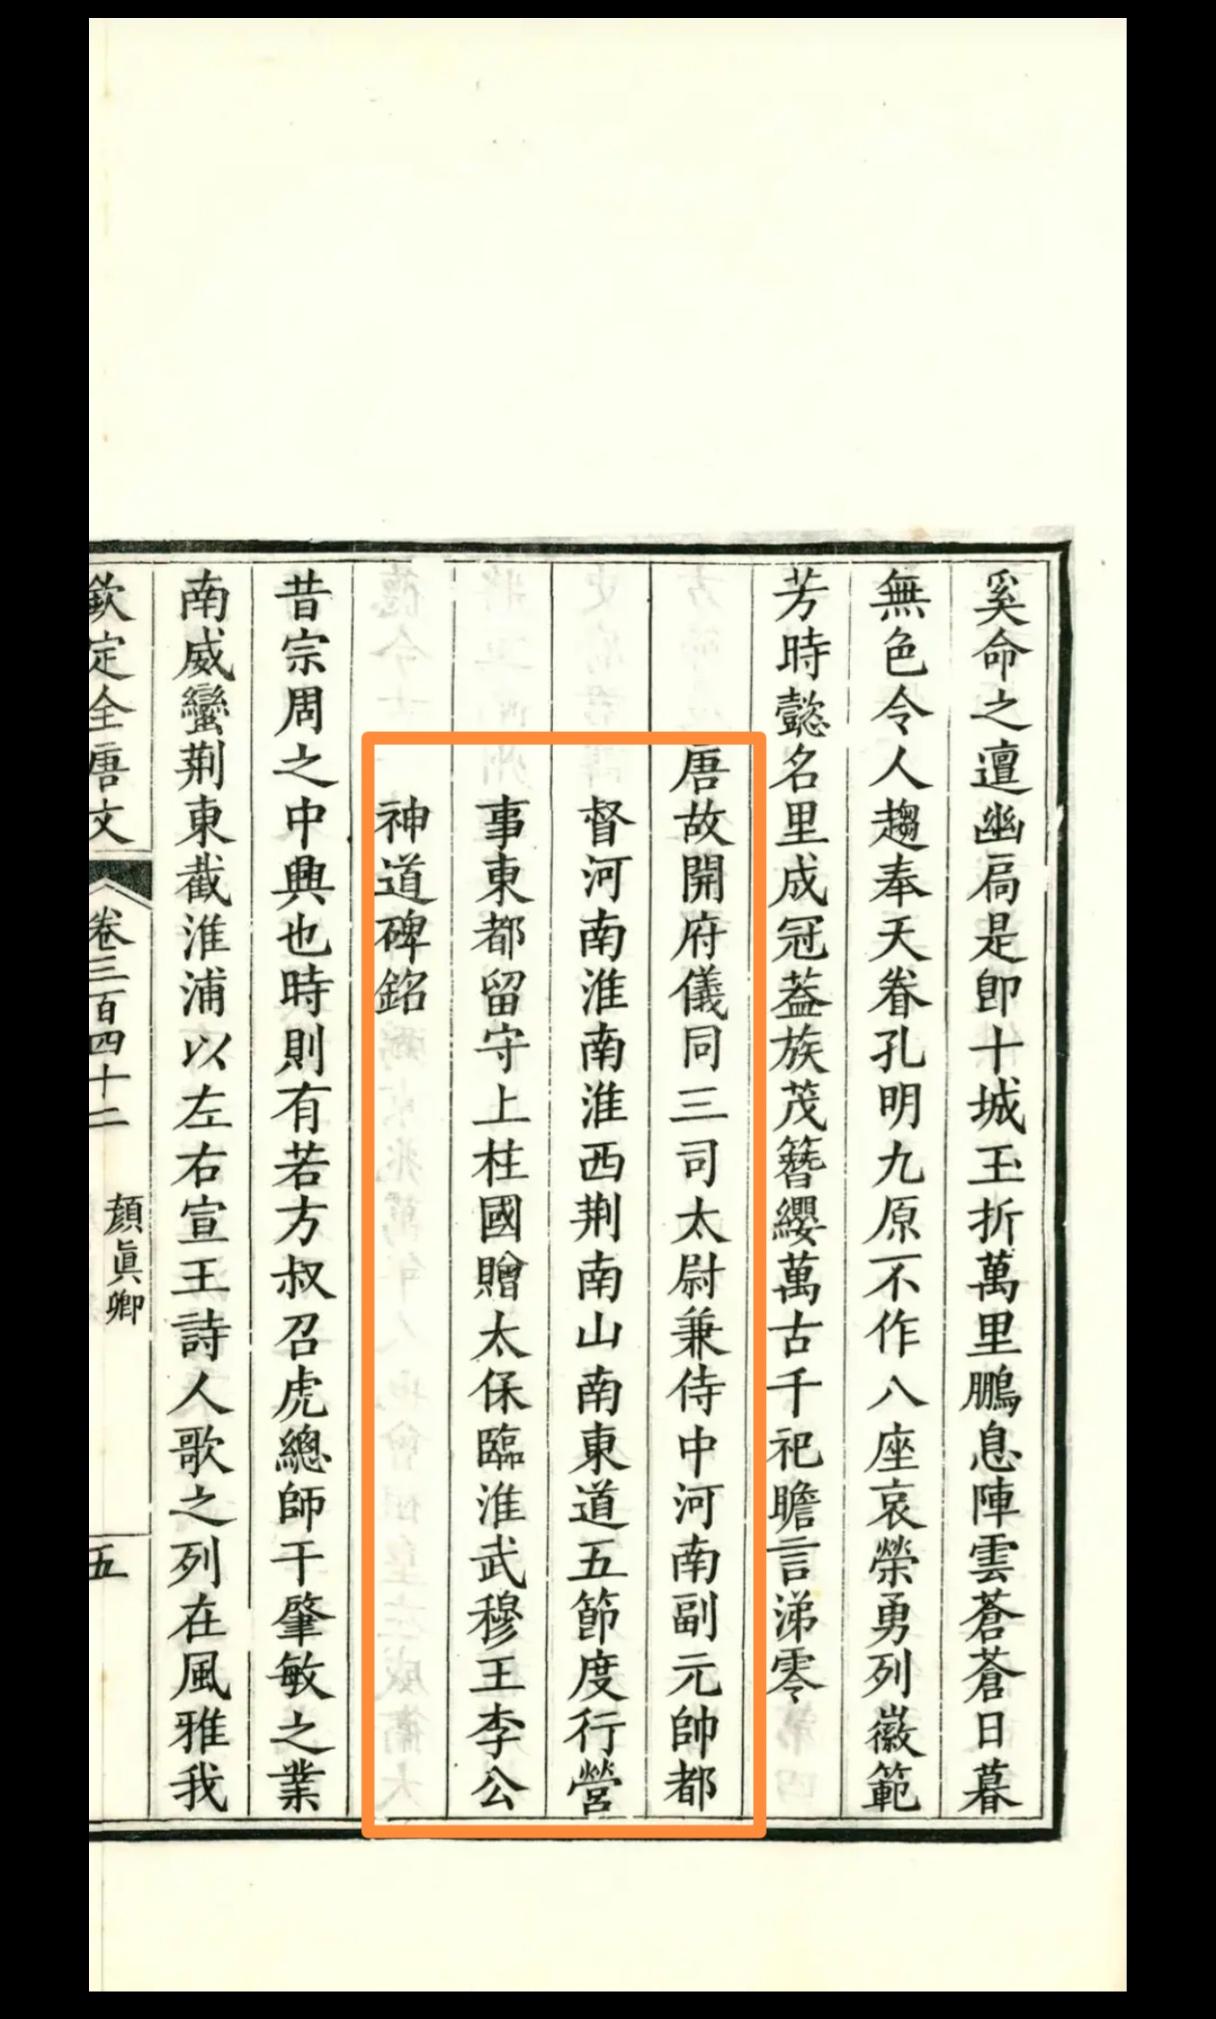 奚命之邅幽扃是卽十城玉折萬里鵬息陣雲蒼蒼日暮
無色令人趨奉天眷孔明九原不作八座哀榮勇列徽範
芳時懿名里成冠葢族茂簪纓萬古千祀瞻言涕零
唐故開府儀同三司太尉兼侍中河南副元帥都
督河南淮南淮西荆南山南東道五節度行營
事東都留守上柱國贈太保臨淮武穆王李公
神道碑銘
昔宗周之中興也時則有若方叔召虎總師干肇敏之業
南威蠻荆東截淮浦以左右宣王詩人歌之列在風雅我
欽定全唐文 卷三百四十二 顏眞卿 五